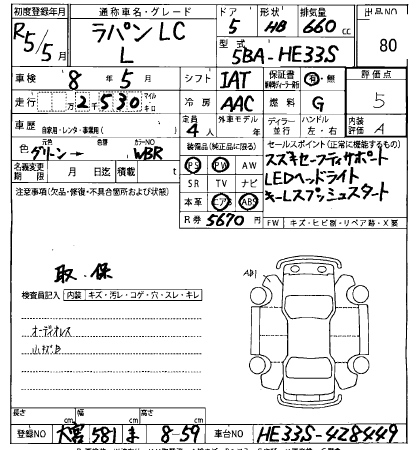 初度登録年月 通称車名・グレード ドア 形状 排気量 出品NO
R5/5月 ラパンLC L 5 HB 660cc 80
型式 5BA-HE33S
車検 8年5月 シフト IAT 保証書 有・無 評価点
走行 万2千530 マイル キロ 冷房 AAC 燃料 G 5
車歴 自家用・レンタ・事業用( ) 定員 4人 外車モデル ディーラー 並行 ハンドル 左・右 内装評価 A
色 元色 グリーン→ 色替 カラーNO WBR 装備品(純正品に限る) セールスポイント(正常に機能するもの)
名義変更期限 月 日迄 積載 t PS PW AW スズキセーフティサポート
注意事項(欠品・修復・不具合箇所および状態) SR TV ナビ LEDヘッドライト
本革 エアB ABS キーレスプッシュスタート
R券 5670円 FW キズ・ヒビ割・リペア跡・X要
取.保
検査員記入 内装 キズ・汚レ・コゲ・穴・スレ・キレ
AD1
オーディオレス
長さ cm 幅 cm 高さ cm
登録NO 大宮 581 ま 8-59 車台NO HE33S-428449